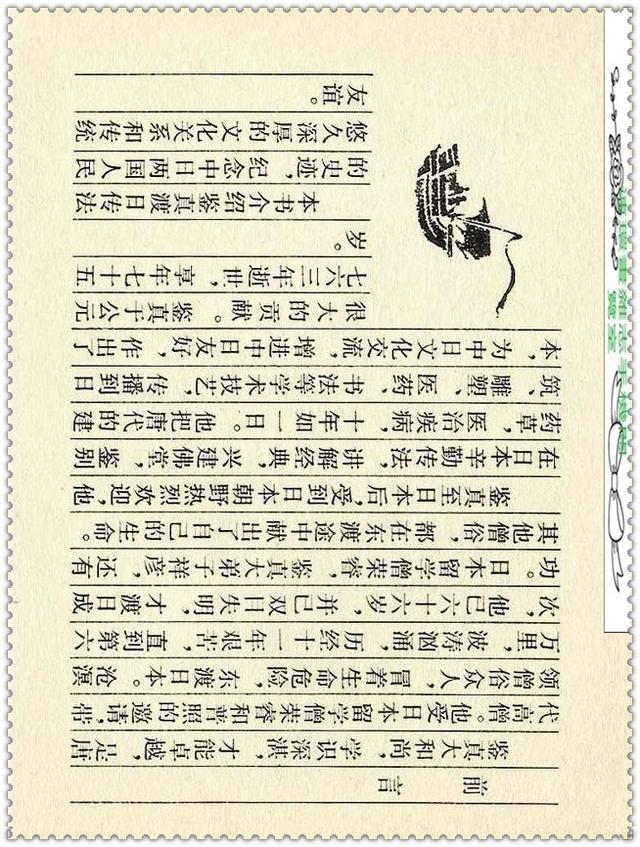 前言
鉴真大和尚，学识深湛，才能卓越，是唐
代高僧。他受日本留学僧荣睿和普照的邀请，带
领僧俗众人，冒着生命危险，东渡日本。沧溟
万里，波涛汹涌，历经十一年艰苦，直到第六
次，他已六十六岁，并已双目失明，才渡日成
功。日本留学僧荣睿，鉴真大弟子祥彦，还有
其他僧俗，都在东渡中途献出了自己的生命。
鉴真至日本后，受到日本朝野热烈欢迎，他
在日本辛勤传法，讲解经典，兴建佛堂，鉴别
药草，医治疾病，十年如一日。他把唐代的建
筑、雕塑、医药、书法等学术技艺，传播到日
本，为中日文化交流，增进中日友好，作出了
很大的贡献。鉴真于公元
七六三年逝世，享年七十五
岁。
本书介绍鉴真渡日传法
的史迹，纪念中日两国人民
悠久深厚的文化关系和传统
友谊。